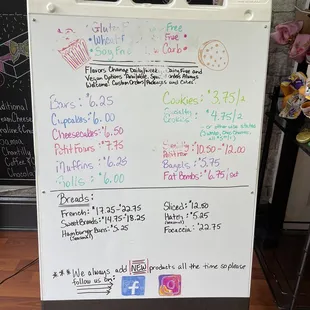 Gluten Free
Wheat Free
Soy Free Low Carb
Flavors Change Daily/Week. Dairy Free and
Vegan Options Available. Special orders Always
Welcome. Custom Orders/Packages and Cakes.
Bars: $6.25
Cupcakes: $6.00
Cheesecakes: $6.50
Petit Fours: $7.75
Muffins: $6.25
Rolls: $6.00
Cookies: $3.75/+
Specialty Cookies: $4.75/+
- or other wise stated
$10.50-$12.00
Bagels: $5.75
Fat Bombs: $6.75/
Breads:
French: $17.25-$22.75
Sweet Breads: $14.75-$18.25
Hamburger Buns: $5.25
Sliced: $12.50
$5.25
Focaccia: $22.75
***We always add NEW products all the time so please
follow us on:
f
traditional
Chocolate